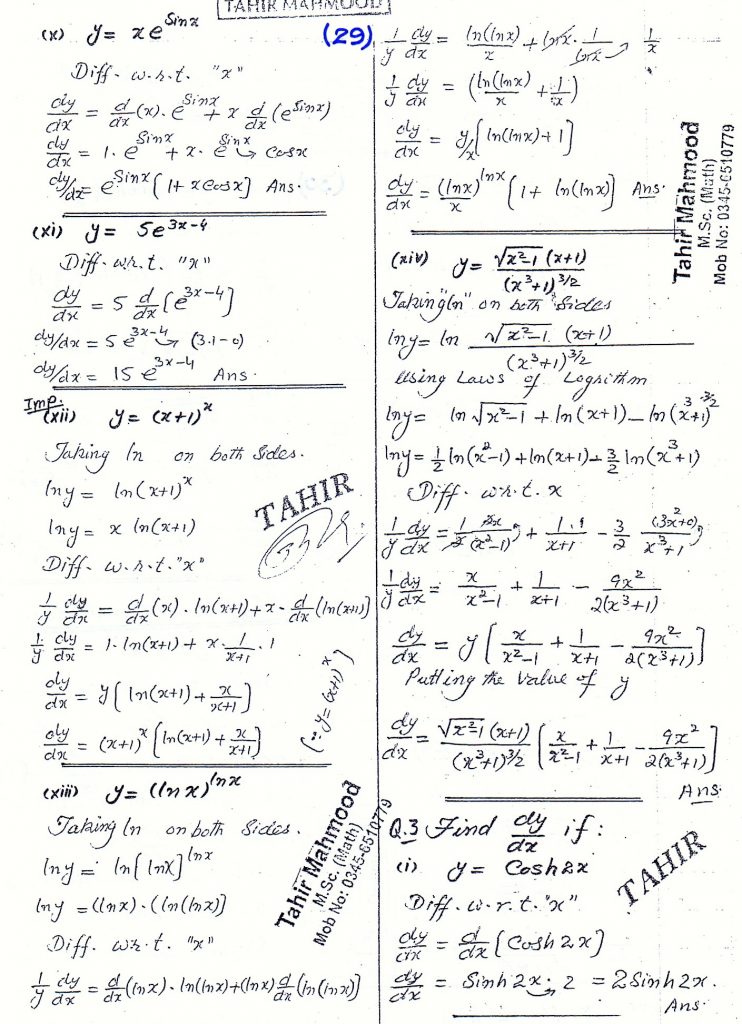 TAHIR MAHMOOD
(29)
(x) y = xe^Sinx
Diff. w.r.t. "x"
dy/dx = d/dx (x) . e^Sinx + x d/dx (e^Sinx)
dy/dx = 1. e^Sinx + x. e^Sinx cosx
dy/dx = e^Sinx [1+ x cosx] Ans.
(xi) y = 5e^3x-4
Diff. w.r.t. "x"
dy/dx = 5 d/dx [e^3x-4]
dy/dx = 5 e^3x-4 (3.1-0)
dy/dx = 15 e^3x-4 Ans.
Imp.
(xii) y = (x+1)^x
Taking ln on both Sides.
ln y = ln(x+1)^x
ln y = x ln(x+1)
TAHIR
Diff. w.r.t. "x"
1/y dy/dx = d/dx (x) . ln(x+1) + x . d/dx (ln(x+1))
1/y dy/dx = 1. ln(x+1) + x. 1/x+1 . 1
dy/dx = y [ln(x+1) + x/x+1]
dy/dx = (x+1)^x [ln(x+1) + x/x+1]
(∵ y = (x+1)^x)
(xiii) y = (ln x)^lnx
Taking ln on both Sides.
ln y = ln [lnx]^lnx
ln y = (lnx) . (ln(lnx)]
Diff. w.r.t. "x"
1/y dy/dx = d/dx (lnx) . ln(lnx) + (lnx) d/dx [ln(lnx)]
Tahir Mahmood
M.Sc. (Math)
Mob No: 0345-6510779
1/y dy/dx = ln(lnx)/x + lnx . 1/lnx . 1/x
1/y dy/dx = (ln(lnx)/x + 1/x)
dy/dx = y/x [ln(lnx) + 1]
dy/dx = (lnx)^lnx/x [1 + ln(lnx)] Ans.
Tahir Mahmood
M.Sc. (Math)
Mob No: 0345-6510779
(xiv) y = √x²-1 (x+1)/(x³+1)^3/2
Taking "ln" on both Sides
ln y = ln √x²-1 (x+1)/(x³+1)^3/2
Using Laws of Logrithm
ln y = ln √x²-1 + ln(x+1) - ln(x³+1)^3/2
ln y = 1/2 ln(x²-1) + ln(x+1) - 3/2 ln(x³+1)
Diff. w.r.t. x
1/y dy/dx = 1/2 2x/(x²-1) + 1.1/x+1 - 3/2 (3x²+0)/x³+1
1/y dy/dx = x/x²-1 + 1/x+1 - 9x²/2(x³+1)
dy/dx = y [x/x²-1 + 1/x+1 - 9x²/2(x³+1)]
Putting the value of y
dy/dx = √x²-1 (x+1)/(x³+1)^3/2 [x/x²-1 + 1/x+1 - 9x²/2(x³+1)]
Ans.
Q.3 Find dy/dx if:
TAHIR
(i) y = Cosh2x
Diff. w.r.t. "x"
dy/dx = d/dx [Cosh2x]
dy/dx = Sinh2x . 2 = 2Sinh2x.
Ans.